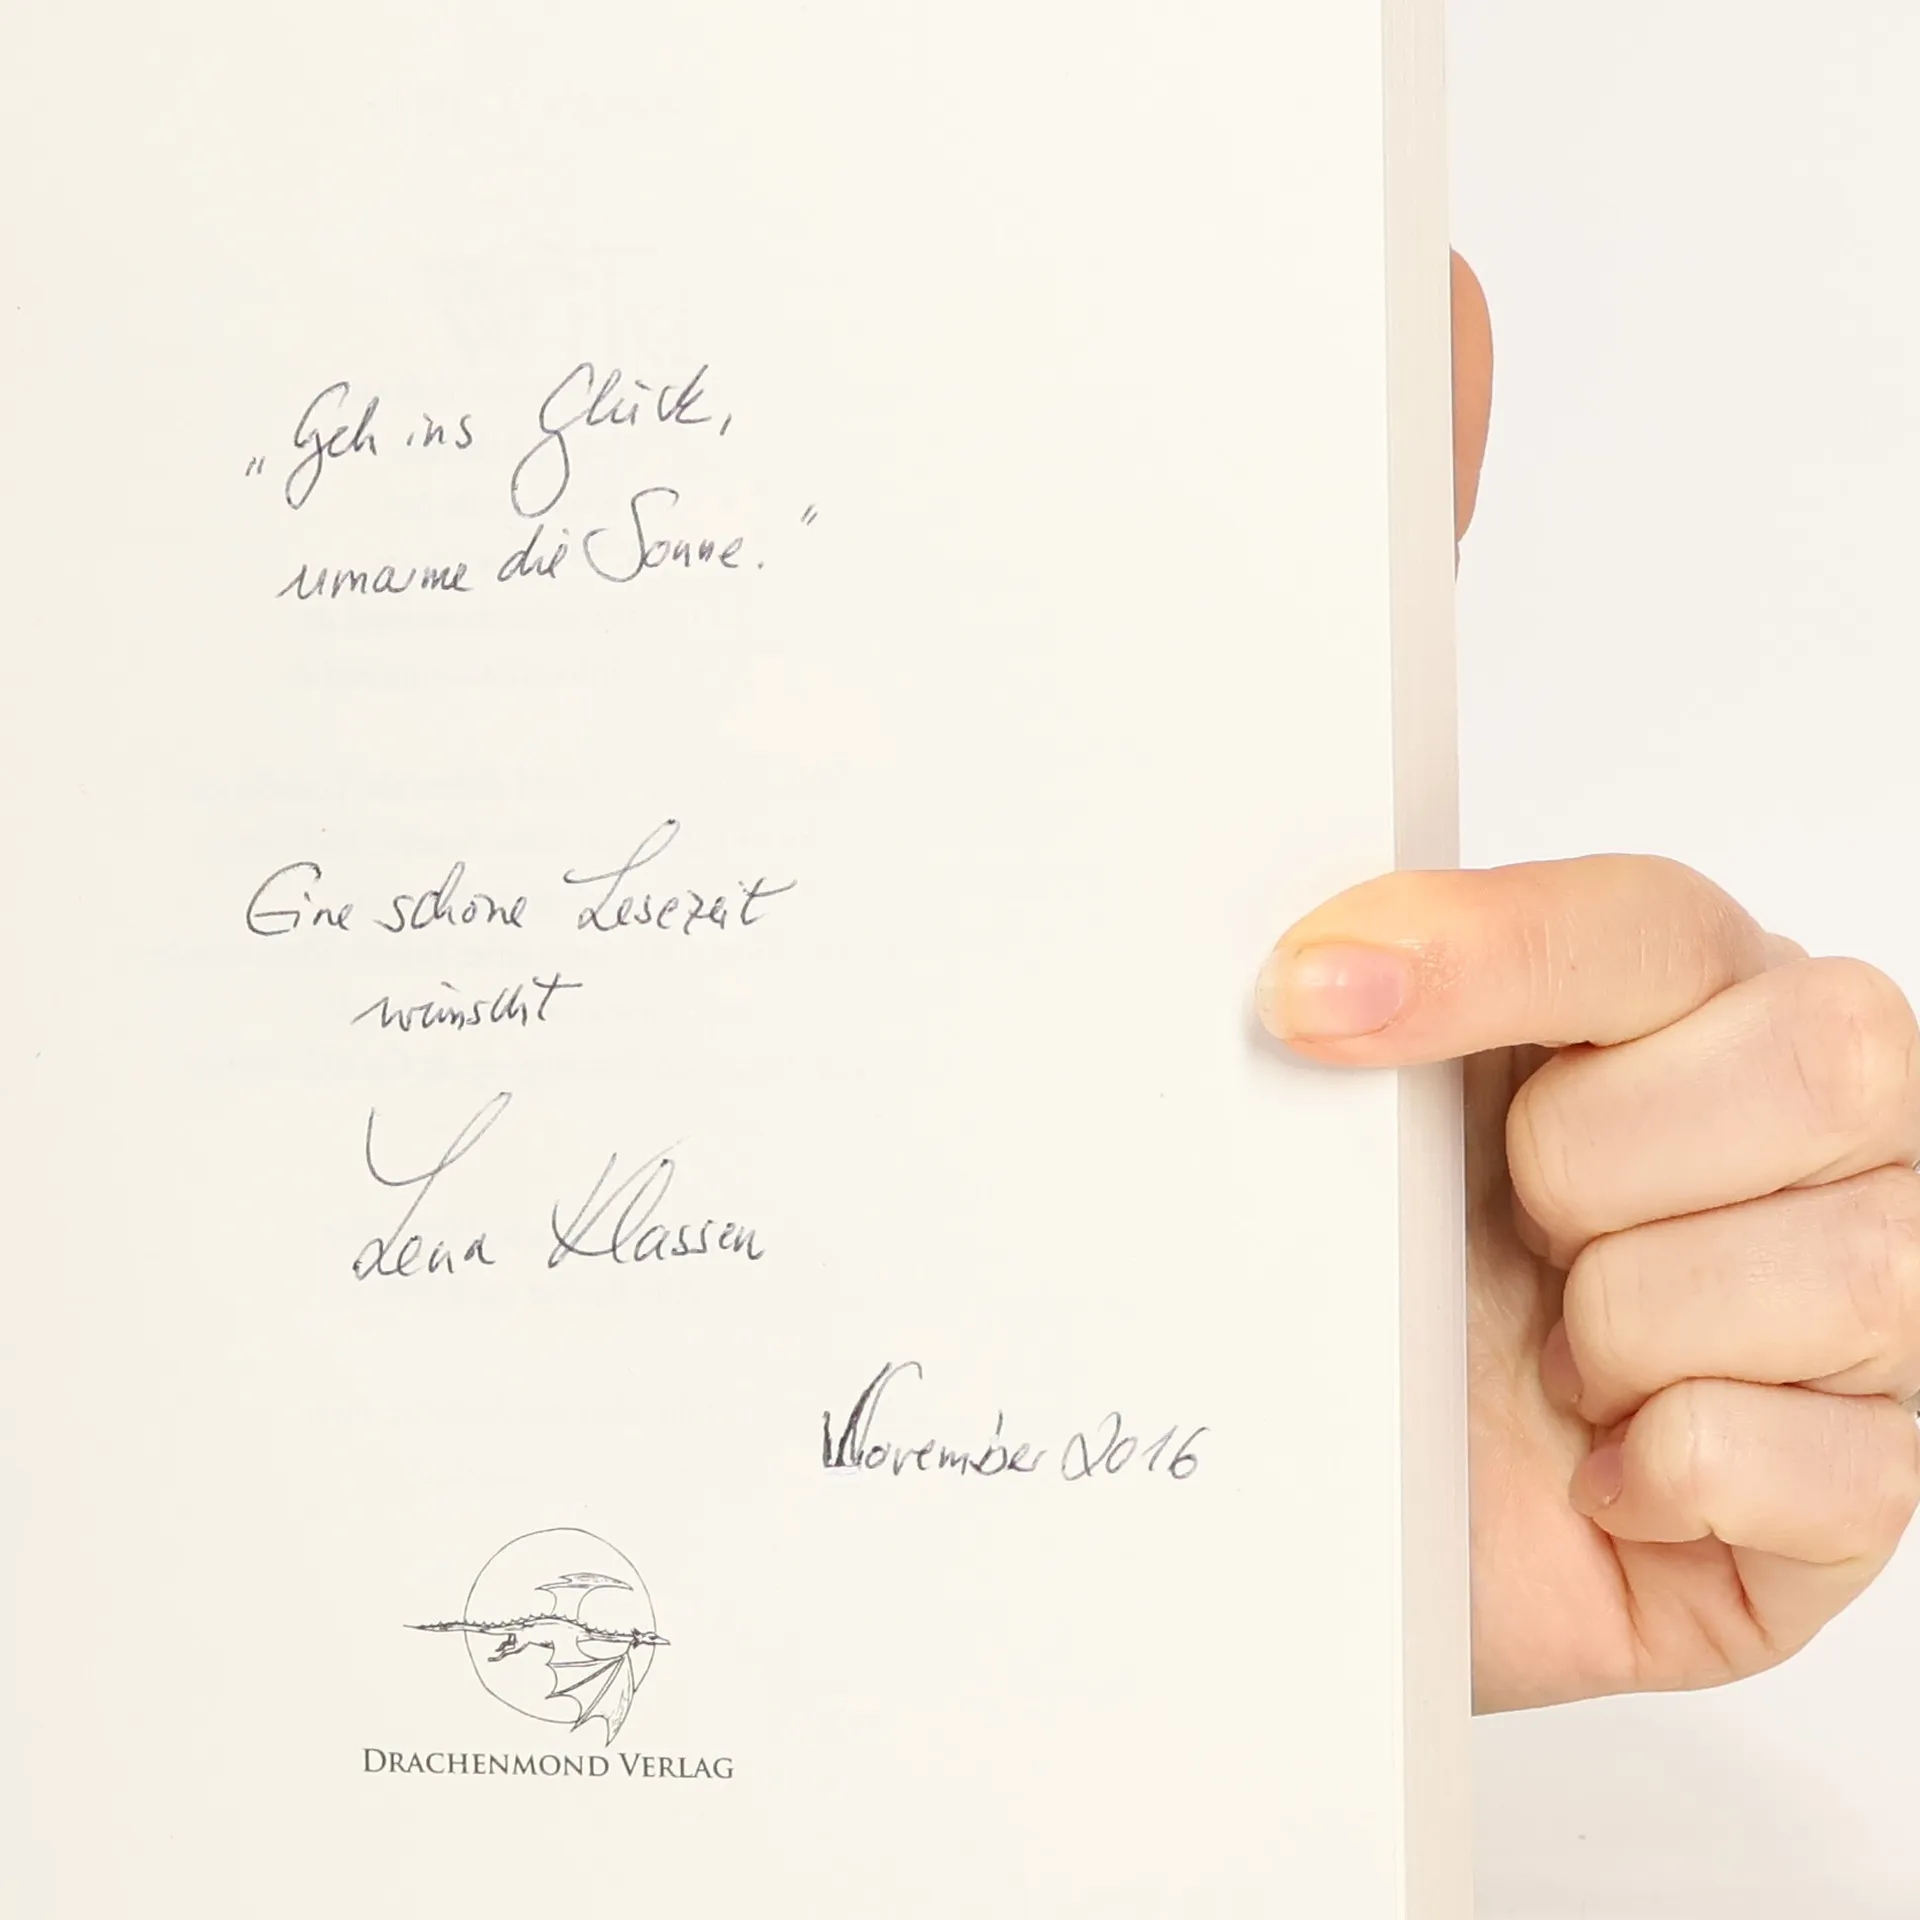 „Geh ins Glück,
umarme die Sonne."
Eine schöne Lesezeit
wünscht
Lena Klassen
November 2016
DRACHENMOND VERLAG